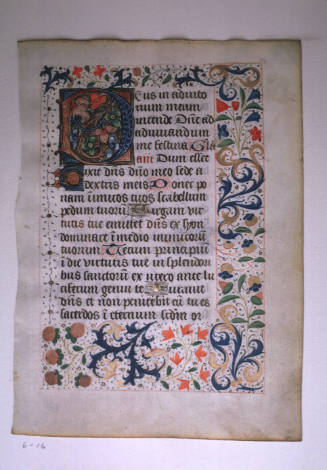 eus in adiuto
rium meum
intende Dñe ad
adiuuandum
me festina Gła
ant Dum esset
ixit dñs dño meo sede a
dextris meis Donec po
nam inimicos tuos scabellum
pedum tuorū Virgam vir
tutis tue emittet dñs ex syon
dominare ī medio inimicorū
tuorum Tecum principiū
ī die virtutis tue in splendori
bus sanctorū ex utero ante lu
ciferum genui te Iurauit
dñs et non penitebit eū tu es
sacerdos ī eternum scdm or
6-16